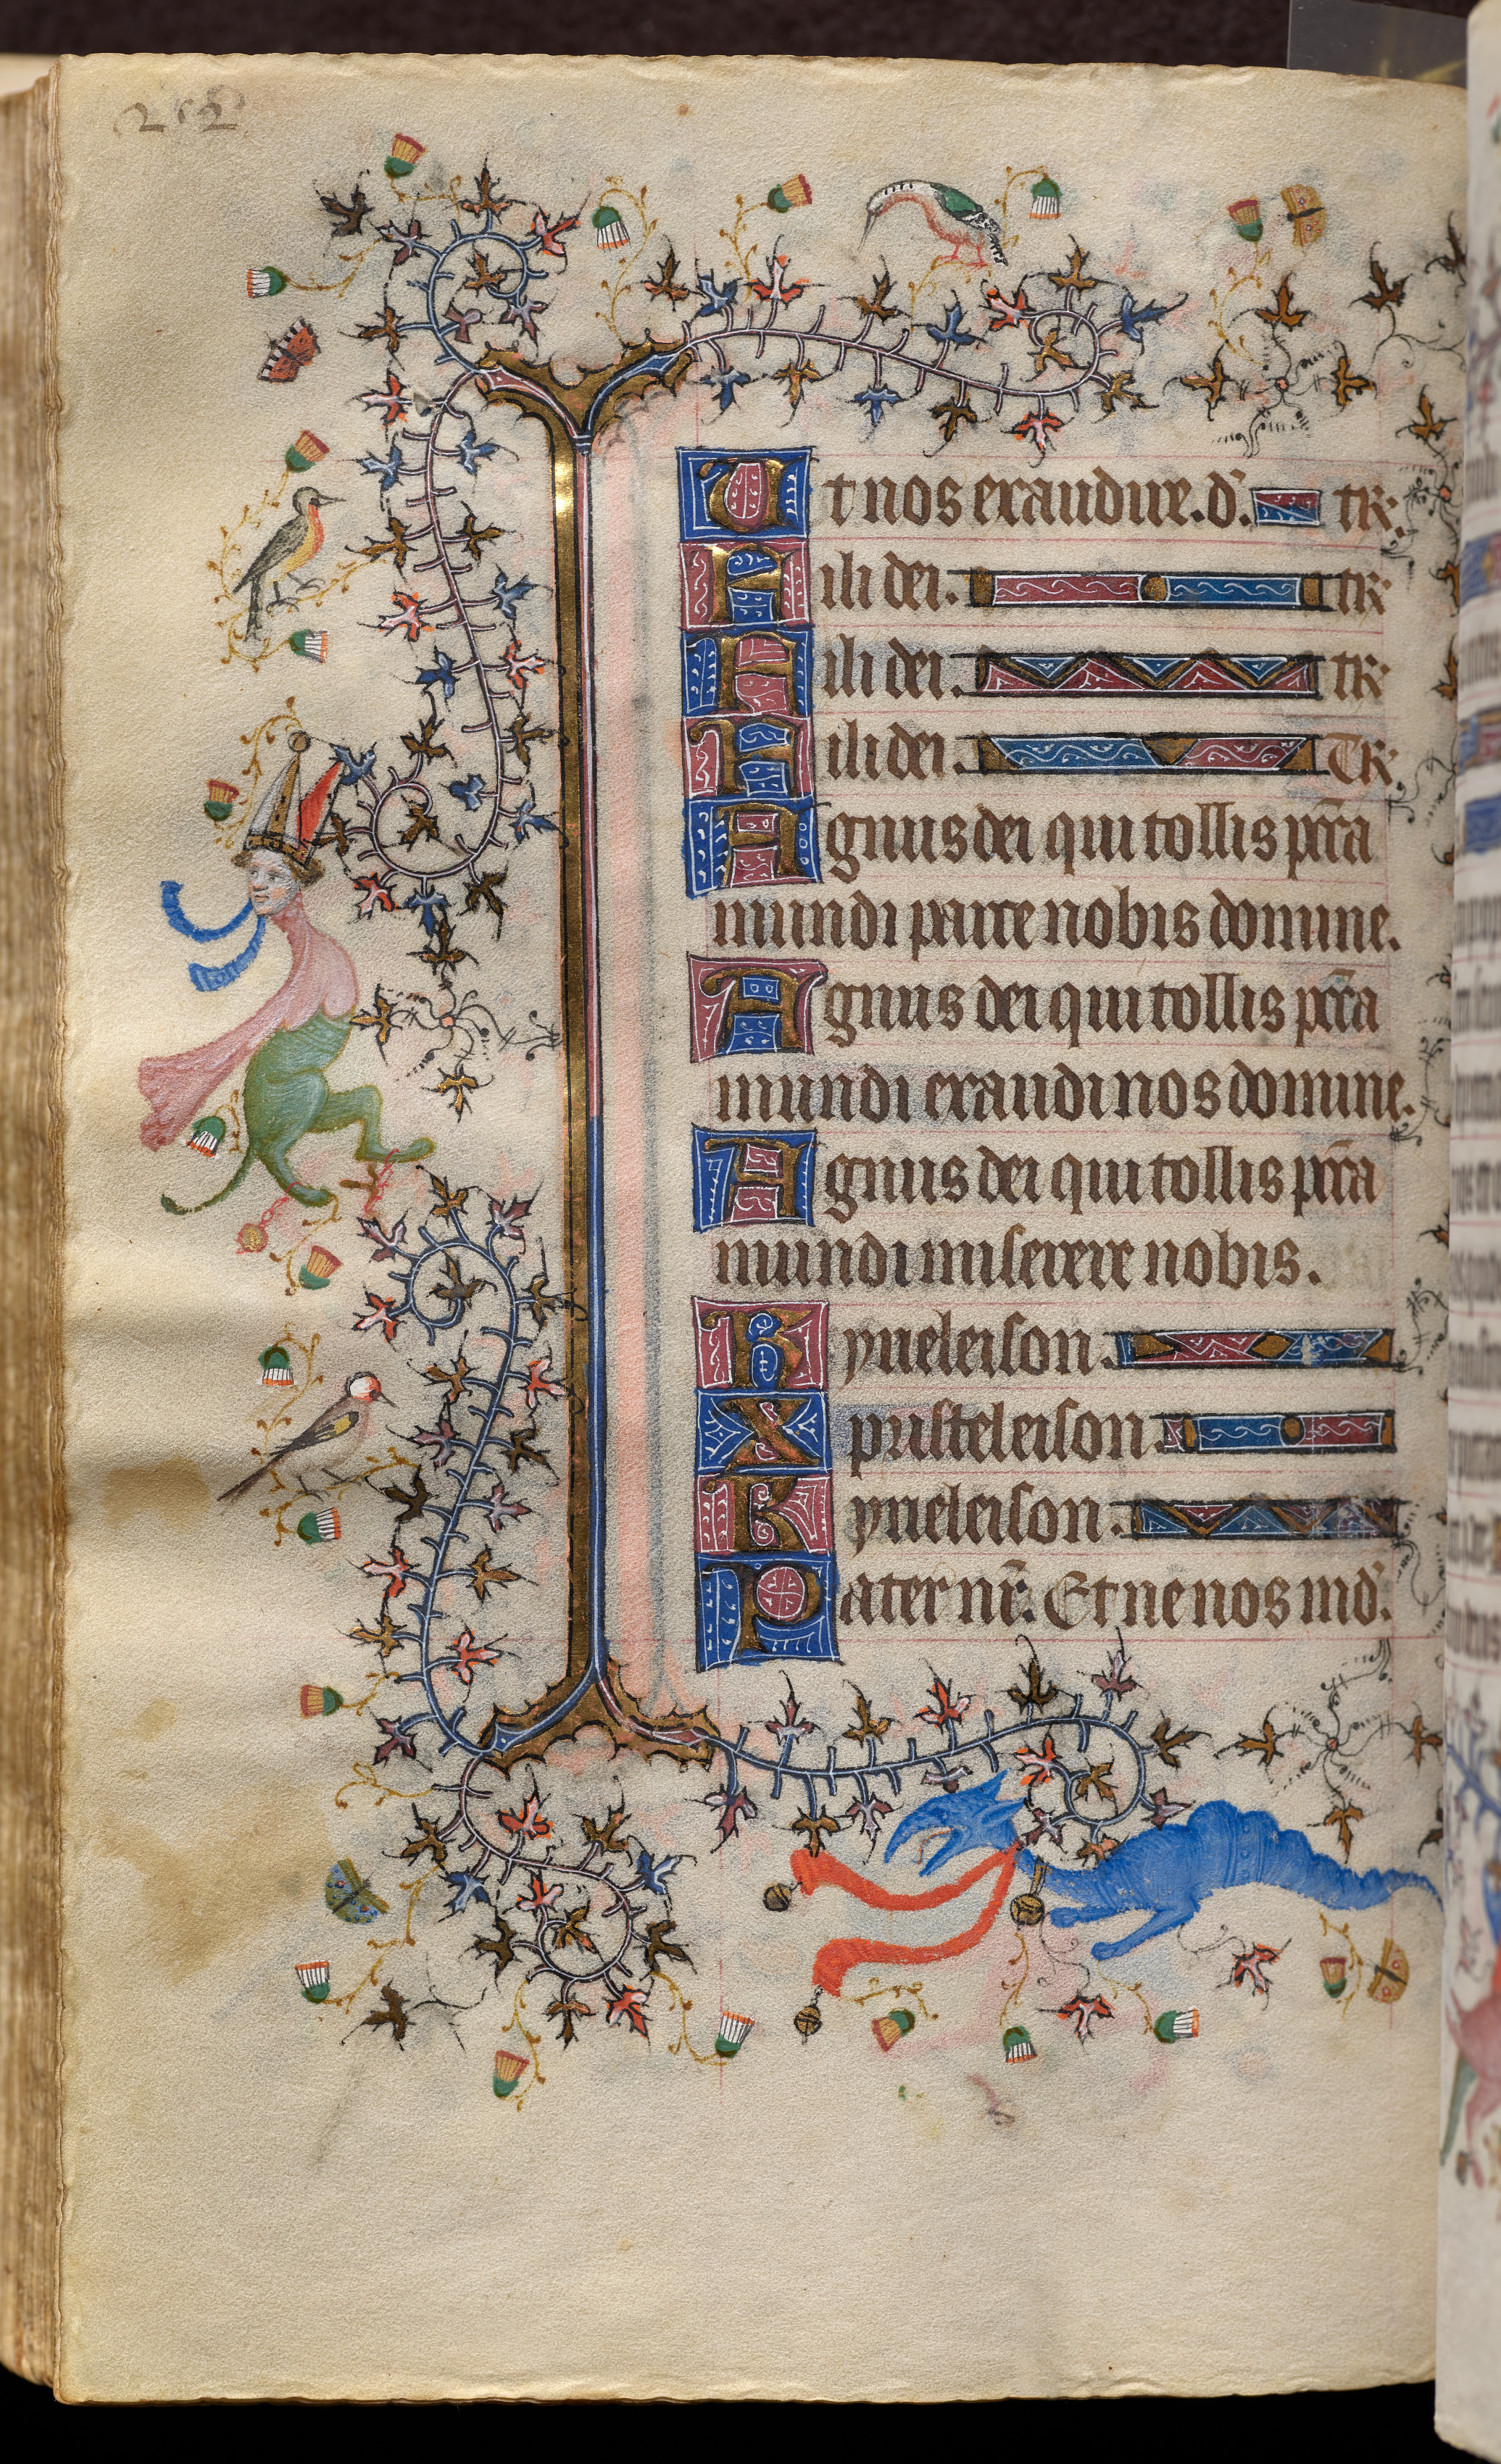 252
Ut nos exaudire. d'. tR.
Fili dei. tR
Fili dei. tR
Fili dei. TR.
Agnus dei qui tollis pccā
mundi parce nobis domine.
Agnus dei qui tollis pccā
mundi exaudi nos domine.
Agnus dei qui tollis pccā
mundi miserere nobis.
Kyrieleison.
Xpristeleison.
Kyrieleison.
Pater nr̄. Et ne nos ind'.